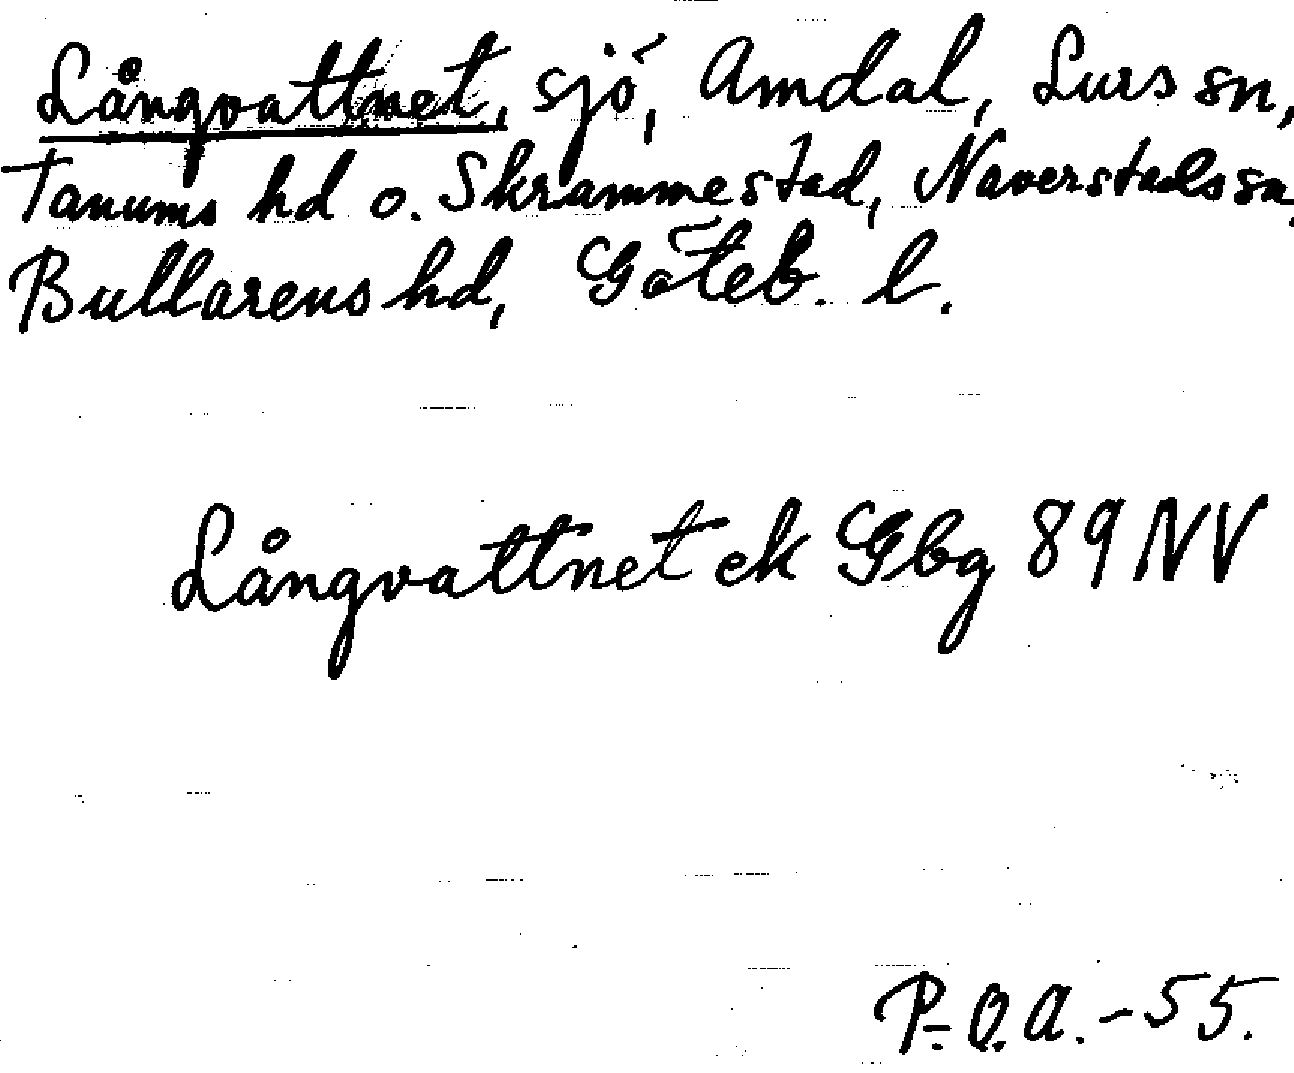 Långvattnet, sjö, Amdal, Lurs sn,
Tanums hd o. Skrammestad, Naverstads sn,
Bullarens hd, Göteb. l.
Långvattnet ek Gbg 89 NV
P.-O.A.-55.